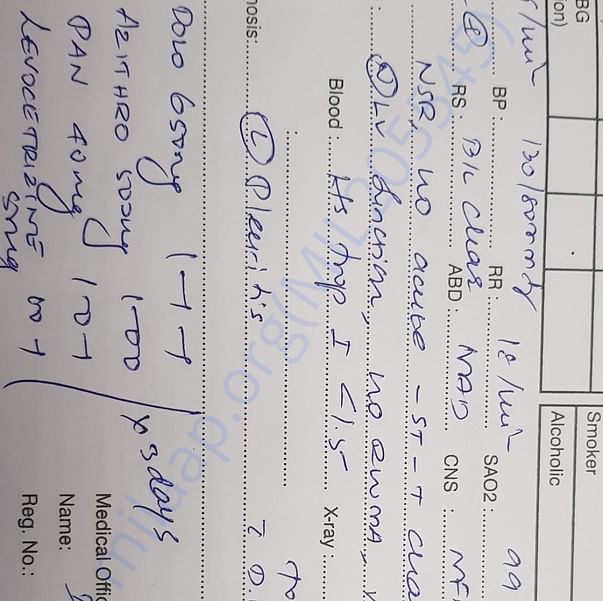 Smoker
Alcoholic
BG
ion)
BP: 130/80mmHg RR: 18/min SAO2: 99
RS: B/L clear ABD: NAD CNS:
NSR, no acute - ST-T cha
N LV function, no RWMA,
Blood: Hs trop I <1.5 X-ray:
nosis: (L) Pleuritis
DOLO 650mg 1-1-1
AZITHRO 500mg 1-0-0
PAN 40mg 1-0-1
LEVOCETRIZINE 5mg 0-0-1
x 3days
Medical Offic
Name:
Reg. No.:
milaap.org(MIL2055549)